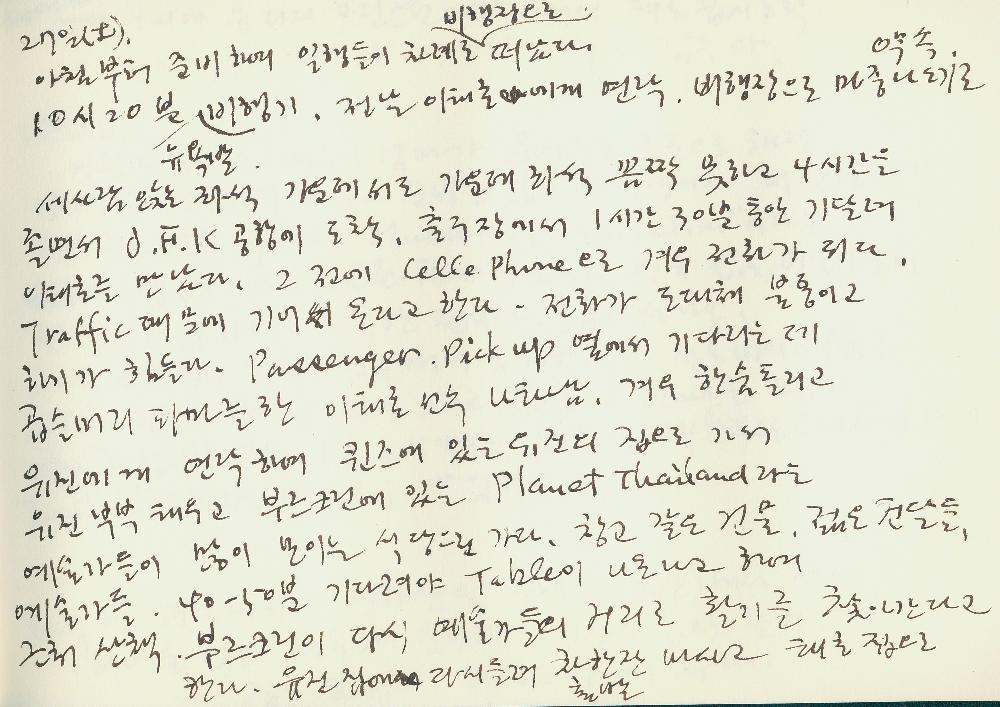 27일(土).
아침부터 준비하여 일행들이 차례로 비행장으로 떠났다.
10시 20분 뉴욕발 비행기. 전날 이태호에게 연락. 비행장으로 마중나오기로 약속.
세사람 앉는 좌석 가운데서도 가운데 좌석 꼼짝 못하고 4시간을
졸면서 J.F.K 공항에 도착. 출구장에서 1시간 30분 동안 기달려
이태호를 만났다. 그 전에 Celle Phone으로 겨우 전화가 되다.
Traffic 때문에 기어서 온다고 한다. 전화가 도대체 불통이고
하기가 힘들다. Passenger. Pick up 열에서 기다리는데
곱슬머리 파마를 한 이태호 나타남. 겨우 한숨돌리고
유진에게 연락하여 퀸즈에 있는 유진의 집으로 가서
유진 태우고 부르크린에 있는 Planet Thailand 라는
예술가들이 많이 모이는 식당으로 가다. 창고 같은 건물. 젊은 건달들,
예술가들. 40-50분 기다려야 Table이 나온다고 하여
근처 산책. 부르크린이 다시 예술가들의 거리로 활기를 찾아간다고
한다. 유진 집에 다시들려 차한잔 마시고 태호 집으로
출발